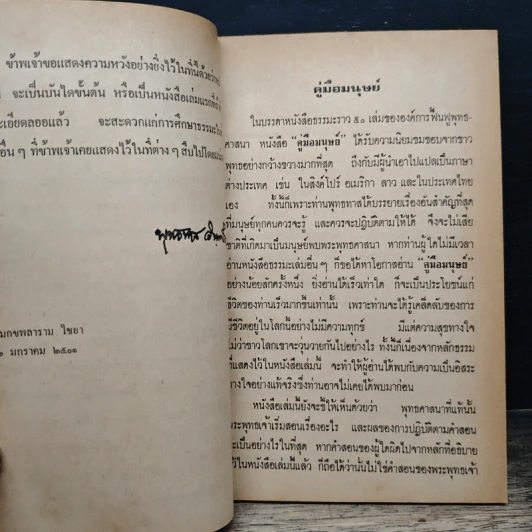 ข้าพเจ้าขอแสดงความหวังอย่างยิ่งไว้ในที่นี้ด้วยว่า
จะเป็นบันไดขั้นต้น หรือเป็นหนังสือเล่มแรกที่
ะเอียดลออแล้ว จะสะดวกแก่การศึกษาธรรมะ
อื่น ๆ ที่ข้าพเจ้าเคยแสดงไว้ในที่ต่าง ๆ สืบไปโดย
พุทธทาส อินทปัญโญ
มกขพลาราม ไชยา
มกราคม ๒๕๐๑
คู่มือมนุษย์
ในบรรดาหนังสือธรรมะราว ๕๐ เล่มขององค์การฟื้นฟูพุทธ-
ศาสนา หนังสือ "คู่มือมนุษย์" ได้รับความนิยมชมชอบจากชาว
พุทธอย่างกว้างขวางมากที่สุด ถึงกับมีผู้นำเอาไปแปลเป็นภาษา
ต่างประเทศ เช่น ในสิงค์โปร์ อเมริกา ลาว และในประเทศไทย
เอง ทั้งนี้ก็เพราะท่านพุทธทาสได้บรรยายเรื่องอันสำคัญที่สุด
ที่มนุษย์ทุกคนควรจะรู้ และควรจะปฏิบัติตามให้ได้ จึงจะไม่เสีย
ชาติที่เกิดมาเป็นมนุษย์พบพระพุทธศาสนา หากท่านผู้ใดไม่มีเวลา
อ่านหนังสือธรรมะเล่มอื่น ๆ ก็ขอได้หาโอกาสอ่าน "คู่มือมนุษย์"
อย่างน้อยสักครั้งหนึ่ง ยิ่งอ่านได้เร็วเท่าใด ก็จะเป็นประโยชน์แก่
ชีวิตของท่านเร็วมากขึ้นเท่านั้น เพราะท่านจะได้รู้เคล็ดลับของการ
มีชีวิตอยู่ในโลกนี้อย่างไม่มีความทุกข์ มีแต่ความสุขทางใจ
ไม่ว่าชาวโลกเขาจะวุ่นวายกันไปอย่างไร ทั้งนี้ก็เนื่องจากหลักธรรม
ที่แสดงไว้ในหนังสือเล่มนี้ จะทำให้ผู้อ่านได้พบกับความเป็นอิสระ
ทางใจอย่างแท้จริงซึ่งท่านอาจไม่เคยได้พบมาก่อน
หนังสือเล่มนี้ยังจะชี้ให้เห็นด้วยว่า พุทธศาสนาที่แท้นั้น
พระพุทธเจ้าเริ่มสอนเรื่องอะไร และผลของการปฏิบัติตามคำสอน
จะเป็นอย่างไรในที่สุด หากคำสอนของผู้ใดผิดไปจากหลักที่อธิบาย
ไว้ในหนังสือเล่มนี้แล้ว ก็ถือได้ว่านั้นไม่ใช่คำสอนของพระพุทธเจ้า